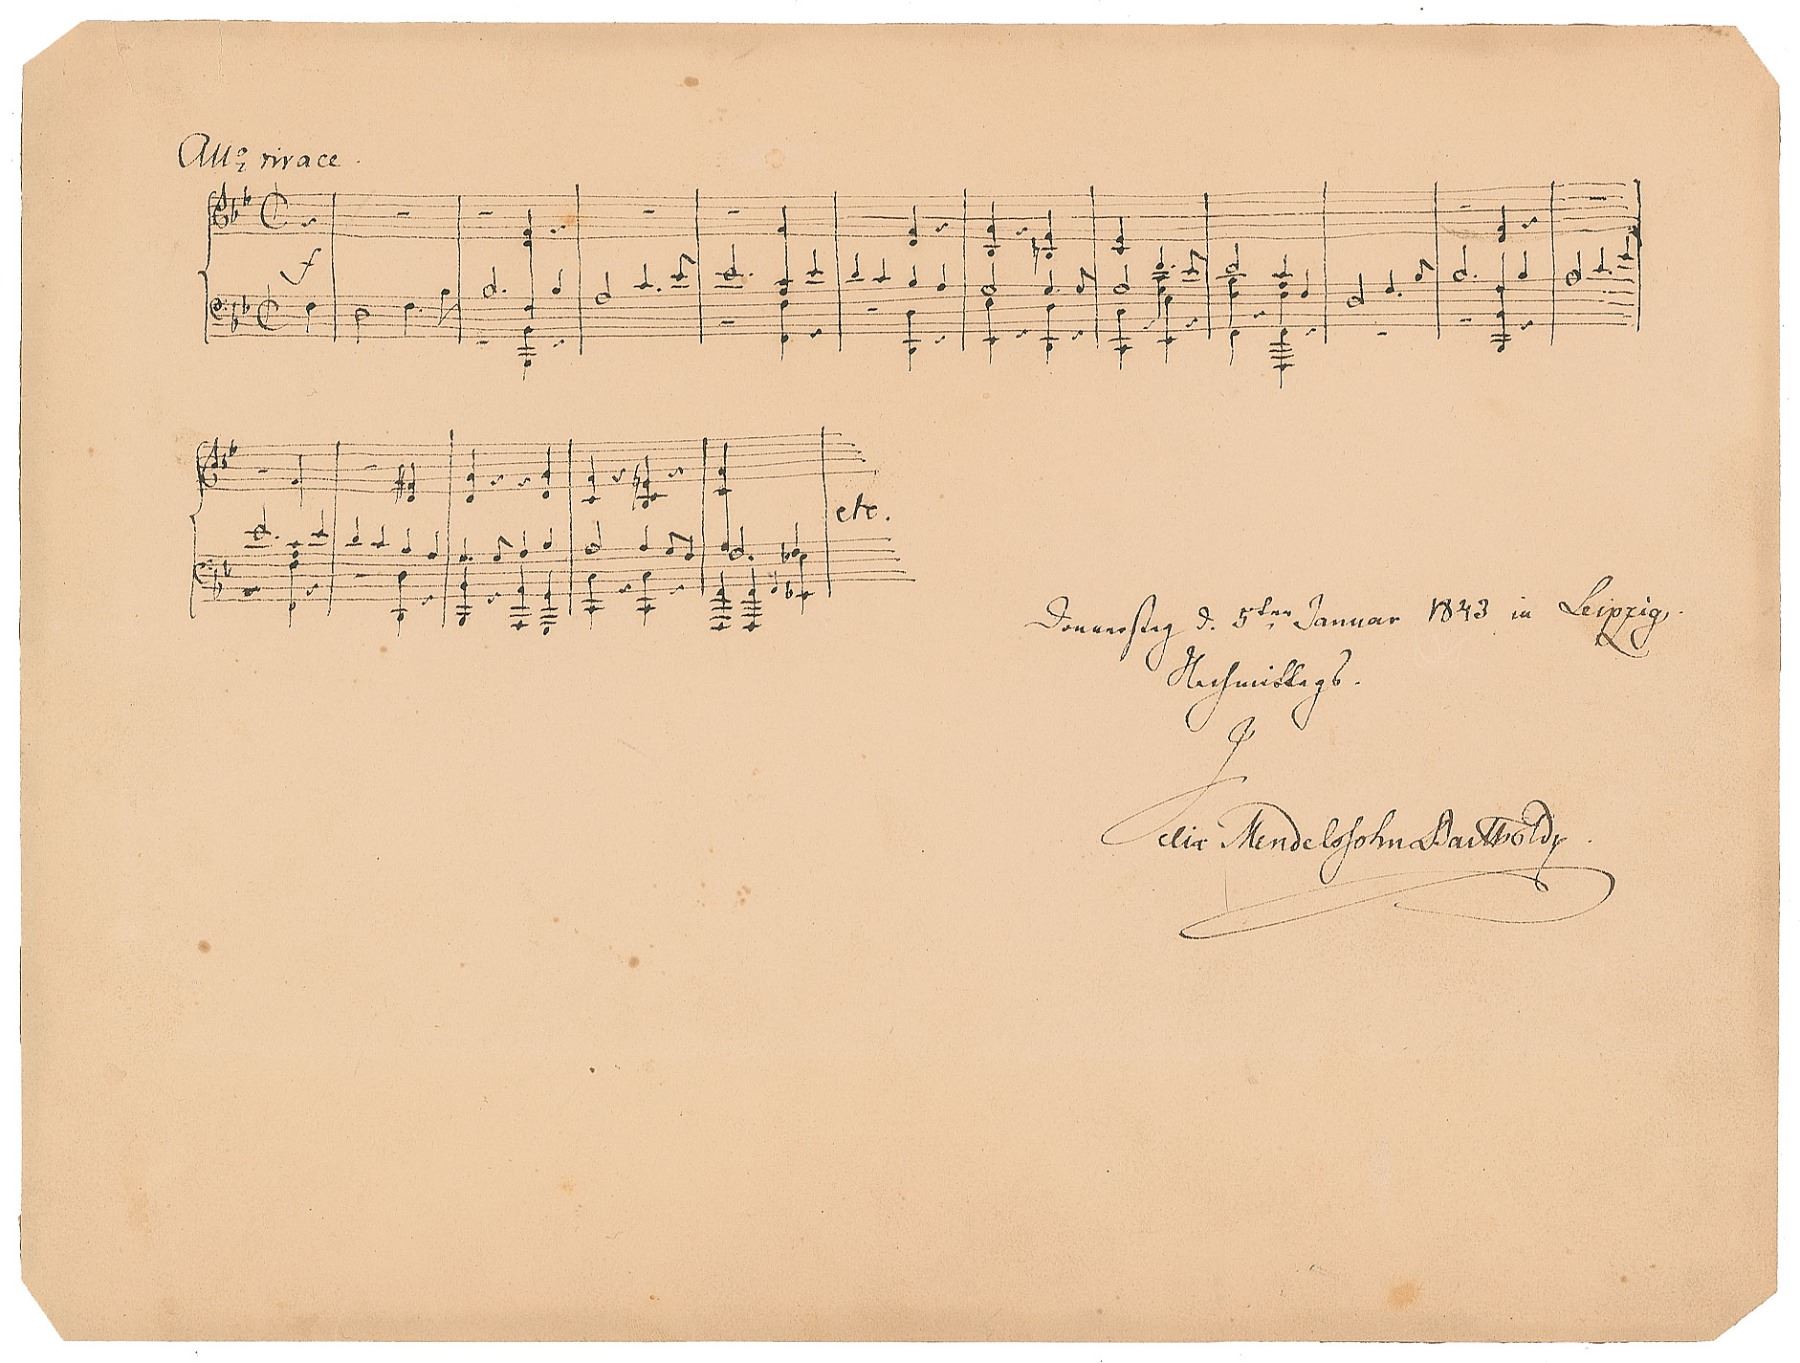 All:o vivace.
f
etc.
Donnerstag d. 5ten Januar 1843 in Leipzig.
Nachmittags.
Felix Mendelssohn Bartholdy.